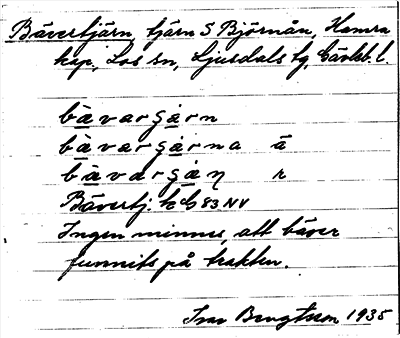 Bävertjärn, tjärn S Björnån, Hamra
kap., Los sn, Ljusdals tg, Gävleb. l.
bävarʂärn
bävarʂärna ä
bävarʂäɳ r
Bävertj. kbl 83 NV
Ingen minnes, att bäver
funnits på trakten.
Ivar Bengtsson 1935